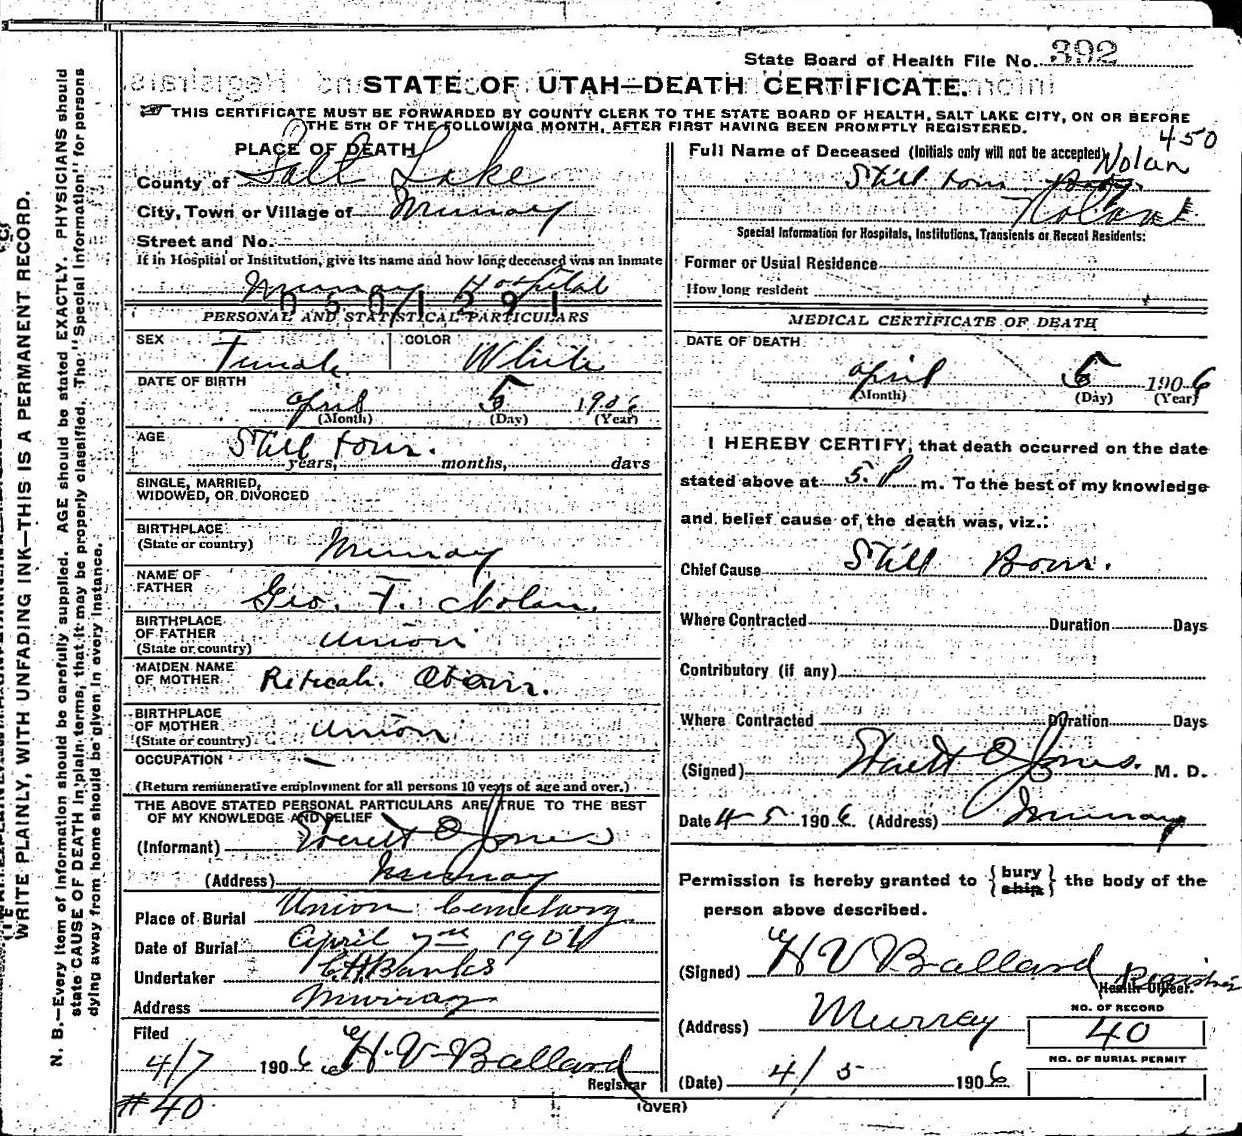 State Board of Health File No. 392
STATE OF UTAH—DEATH CERTIFICATE.
THIS CERTIFICATE MUST BE FORWARDED BY COUNTY CLERK TO THE STATE BOARD OF HEALTH, SALT LAKE CITY, ON OR BEFORE
THE 5TH OF THE FOLLOWING MONTH, AFTER FIRST HAVING BEEN PROMPTLY REGISTERED.
450
PLACE OF DEATH
County of Salt Lake
City, Town or Village of Murray
Street and No.
If in Hospital or Institution, give its name and how long deceased was an inmate
Murray Hospital
0501291
PERSONAL AND STATISTICAL PARTICULARS
SEX Female COLOR White
DATE OF BIRTH
April 5 1906
(Month) (Day) (Year)
AGE Still born.
years, months, days
SINGLE, MARRIED,
WIDOWED, OR DIVORCED
BIRTHPLACE
(State or country) Murray
NAME OF
FATHER Geo. T. Nolan.
BIRTHPLACE
OF FATHER
(State or country) Union
MAIDEN NAME
OF MOTHER
BIRTHPLACE
OF MOTHER
(State or country) Union
OCCUPATION —
(Return remunerative employment for all persons 10 years of age and over.)
THE ABOVE STATED PERSONAL PARTICULARS ARE TRUE TO THE BEST
OF MY KNOWLEDGE AND BELIEF
(Informant) Everett O Jones
(Address) Murray
Place of Burial Union Cemetary.
Date of Burial April 7th 1906
Undertaker Banks
Address Murray
Filed
4/7 1906 H. V. Ballard
Registrar
#40
(OVER)
Full Name of Deceased (Initials only will not be accepted) Nolan
Still born
Noland
Special Information for Hospitals, Institutions, Transients or Recent Residents:
Former or Usual Residence
How long resident
MEDICAL CERTIFICATE OF DEATH
DATE OF DEATH
April 5 1906
(Month) (Day) (Year)
I HEREBY CERTIFY, that death occurred on the date
stated above at 5. P m. To the best of my knowledge
and belief cause of the death was, viz.:
Chief Cause Still Born.
Where Contracted Duration Days
Contributory (if any)
Where Contracted Duration Days
(Signed) Everett O Jones. M. D.
Date 4-5 1906 (Address) Murray
Permission is hereby granted to {bury ship} the body of the
person above described.
(Signed) H V Ballard Registrar
Health Officer.
NO. OF RECORD
(Address) Murray 40
NO. OF BURIAL PERMIT
(Date) 4/5 1906
WRITE PLAINLY, WITH UNFADING INK—THIS IS A PERMANENT RECORD.
N. B.—Every item of information should be carefully supplied. AGE should be stated EXACTLY. PHYSICIANS should
state CAUSE OF DEATH in plain terms, that it may be properly classified. The "Special Information" for persons
dying away from home should be given in every instance.